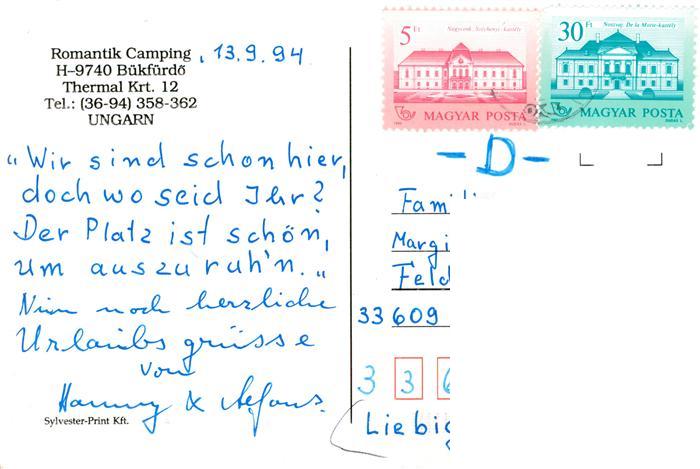 Romantik Camping, 13.9.94
H-9740 Bükfürdő
Thermal Krt. 12
Tel.: (36-94) 358-362
UNGARN
"Wir sind schon hier,
doch wo seid Ihr?
Der Platz ist schön,
um auszuruh'n."
Nun noch herzliche
Urlaubsgrüsse
von
Hanny &
Sylvester-Print Kft.
5 Ft
Nagycenk, Széchenyi-kastély
MAGYAR POSTA
30 Ft
Noszvaj, De la Motte-kastély
MAGYAR POSTA
- D -
Fam
Margi
Feld
33609
3 3 6
Liebig